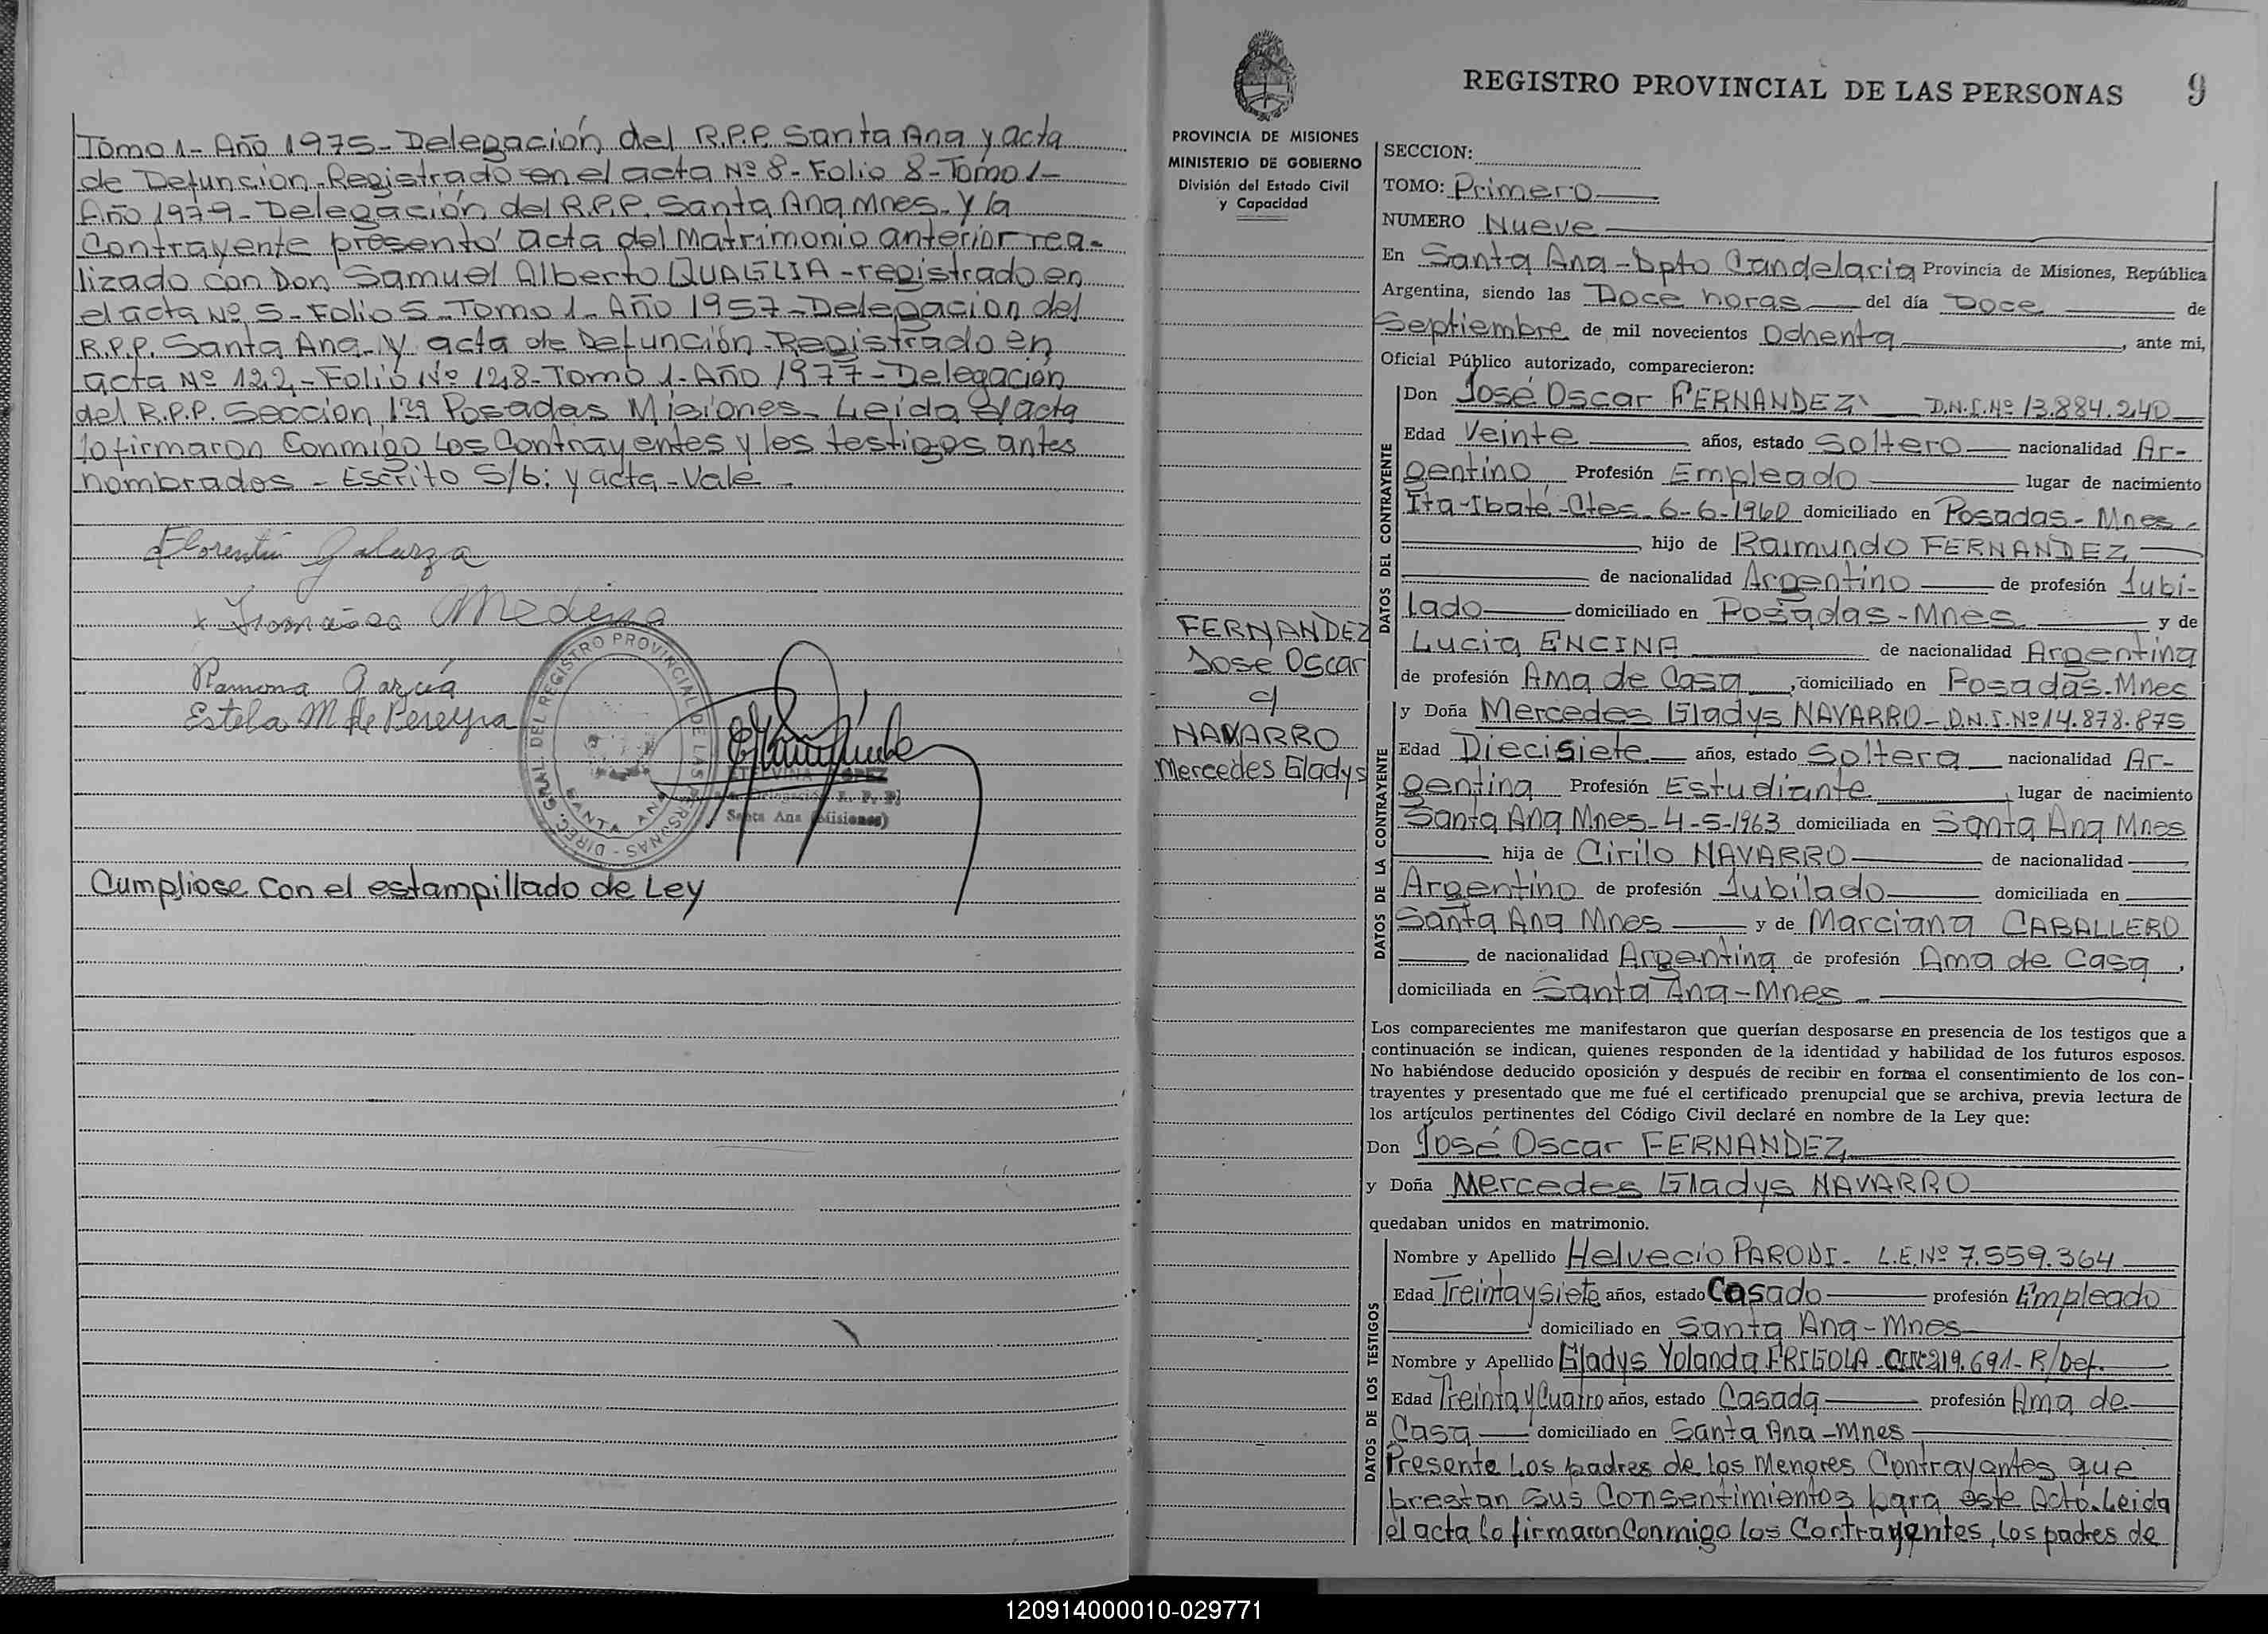 Tomo 1- Año 1975- Delegación del R.P.P. Santa Ana y acta
de Defuncion-Registrado en el acta Nº 8- Folio 8-Tomo 1-
Año 1979- Delegación del R.P.P. Santa Ana Mnes- y la
Contrayente presentó acta del Matrimonio anterior rea-
lizado con Don Samuel Alberto QUAGLIA-registrado en
el acta Nº 5- Folio 5-Tomo 1-Año 1957-Delegacion del
R.P.P. Santa Ana-y acta de Defunción-Registrado en
acta Nº 122-Folio Nº 128-Tomo 1-Año 1977-Delegación
del R.P.P. Sección 1ra Posadas Misiones- Leida el acta
lo firmaron Conmigo Los Contrayentes y los testigos antes
nombrados - Escrito S/b: y acta-Vale -
Florentin Galarza
x Medina
Ramona García
Estela M. de Pereyra
DIREC. GRAL. DEL REGISTRO PROVINCIAL DE LAS PERSONAS - SANTA ANA
LOPEZ
Delegación R. P. P.
Santa Ana (Misiones)
Cumpliose con el estampillado de Ley
REGISTRO PROVINCIAL DE LAS PERSONAS 9
PROVINCIA DE MISIONES
MINISTERIO DE GOBIERNO
División del Estado Civil
y Capacidad
FERNANDEZ
José Oscar
c/
NAVARRO
Mercedes Gladys
SECCION:
TOMO: Primero
NUMERO Nueve
En Santa Ana-Dpto Candelaria Provincia de Misiones, República
Argentina, siendo las Doce horas del día Doce de
Septiembre de mil novecientos Ochenta, ante mi,
Oficial Público autorizado, comparecieron:
DATOS DEL CONTRAYENTE
Don José Oscar FERNANDEZ D.N.I.Nº 13.884.240
Edad Veinte años, estado Soltero nacionalidad Ar-
gentino Profesión Empleado lugar de nacimiento
Ita-Ibaté-Ctes- 6-6-1960 domiciliado en Posadas-Mnes-
hijo de Raimundo FERNANDEZ
de nacionalidad Argentino de profesión Jubi-
lado domiciliado en Posadas-Mnes y de
Lucia ENCINA de nacionalidad Argentina
de profesión Ama de Casa, domiciliado en Posadas-Mnes
DATOS DE LA CONTRAYENTE
y Doña Mercedes Gladys NAVARRO-D.N.I.Nº 14.878.875
Edad Diecisiete años, estado Soltera nacionalidad Ar-
gentina Profesión Estudiante, lugar de nacimiento
Santa Ana Mnes- 4-5-1963 domiciliada en Santa Ana Mnes
hija de Cirilo NAVARRO de nacionalidad
Argentino de profesión Jubilado domiciliada en
Santa Ana Mnes y de Marciana CABALLERO
de nacionalidad Argentina de profesión Ama de Casa,
domiciliada en Santa Ana-Mnes
Los comparecientes me manifestaron que querían desposarse en presencia de los testigos que a
continuación se indican, quienes responden de la identidad y habilidad de los futuros esposos.
No habiéndose deducido oposición y después de recibir en forma el consentimiento de los con-
trayentes y presentado que me fué el certificado prenupcial que se archiva, previa lectura de
los artículos pertinentes del Código Civil declaré en nombre de la Ley que:
Don José Oscar FERNANDEZ
y Doña Mercedes Gladys NAVARRO
quedaban unidos en matrimonio.
DATOS DE LOS TESTIGOS
Nombre y Apellido Helvecio PARODI- L.E.Nº 7.559.364
Edad Treinta y siete años, estado Casado profesión Empleado
domiciliado en Santa Ana-Mnes
Nombre y Apellido Gladys Yolanda FRIGOLA 219.691-R/Def.
Edad Treinta y Cuatro años, estado Casada profesión Ama de
Casa domiciliado en Santa Ana-Mnes
Presente Los padres de los Menores Contrayentes que
prestan sus Consentimientos para este Acto.Leida
el acta lo firmaron Conmigo los Contrayentes, los padres de
120914000010-029771